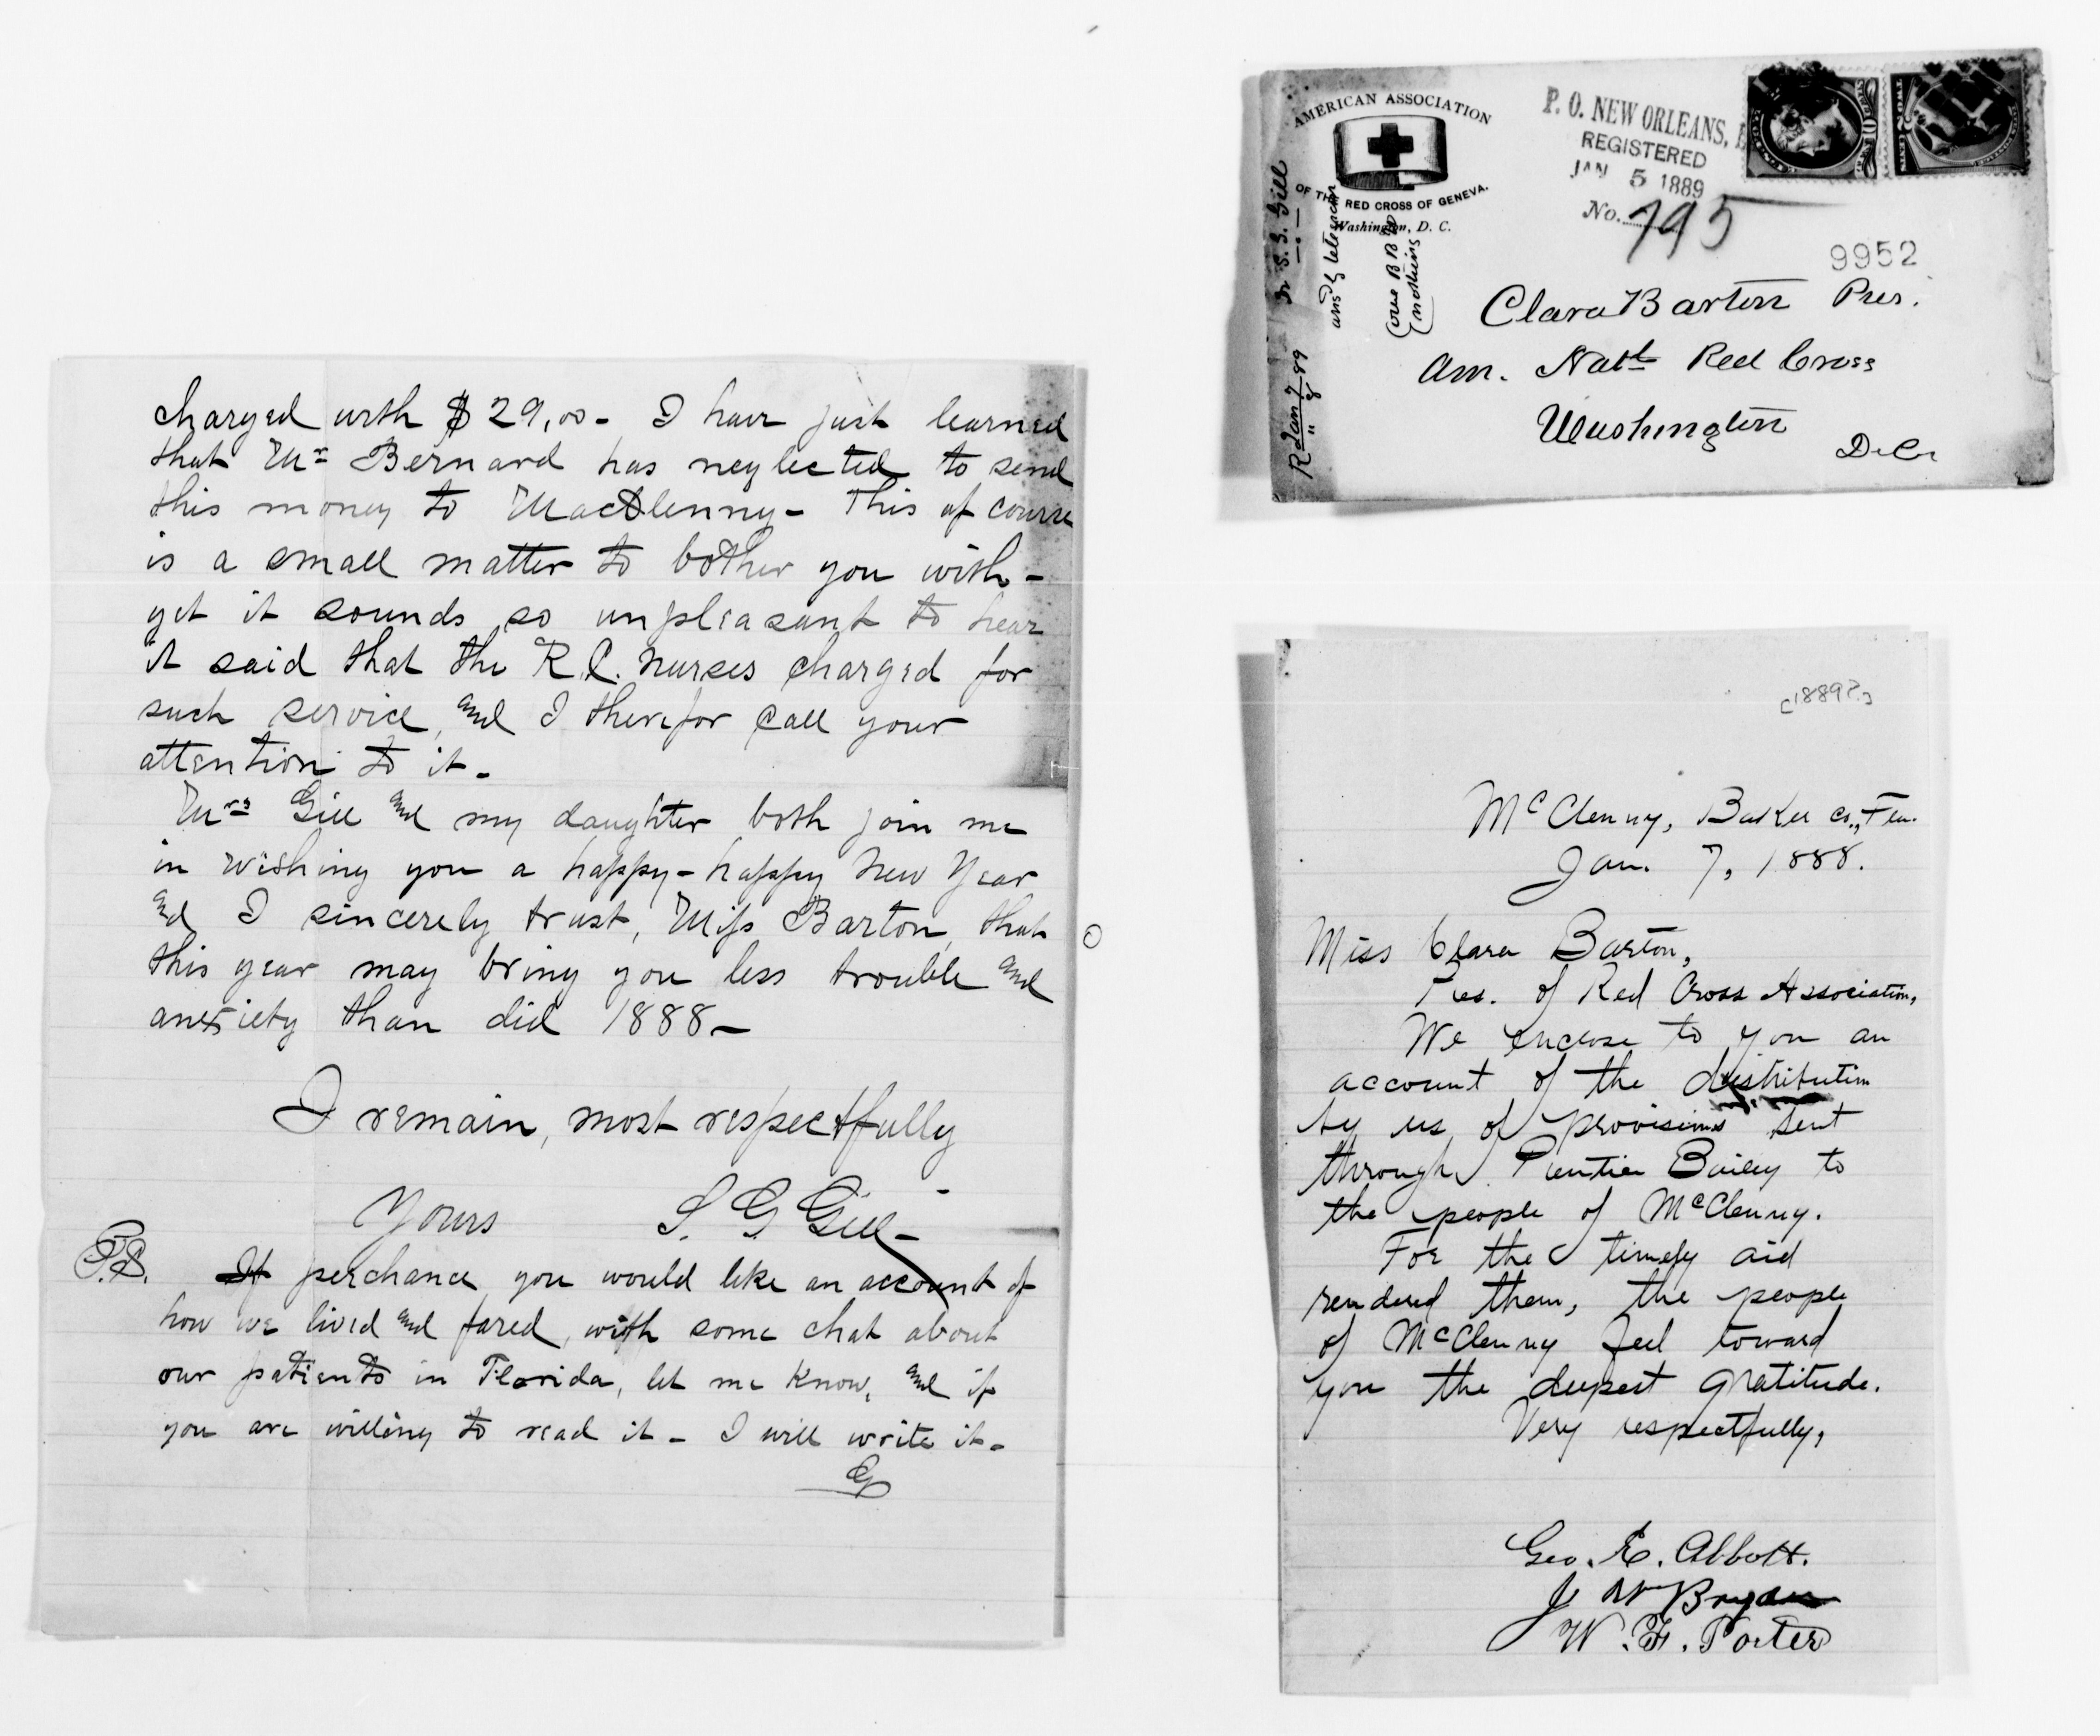 charged with $29.00 - I have just learned
that Mr Bernard has neglected to send
this money to MacClenny - This of course
is a small matter to bother you with -
yet it sounds so unpleasant to hear
it said that the R.C. nurses charged for
such service, and I therefor call your
attention to it -
Mrs Gill and my daughter both join me
in wishing you a happy - happy New Year
and I sincerely trust, Miss Barton, that
this year may bring you less trouble and
anxiety than did 1888 -
I remain, most respectfully
Yours S. G. Gill -
P.S. If perchance you would like an account of
how we lived and fared, with some chat about
our patients in Florida, let me know, and if
you are willing to read it - I will write it -
G
AMERICAN ASSOCIATION
OF THE RED CROSS OF GENEVA.
Washington, D. C.
P. O. NEW ORLEANS,
REGISTERED
JAN 5 1889
No. 795
9952
Clara Barton Pres.
Am. Natl Red Cross
Washington
D. C.
R Jan 7 89
S. G. Gill
ansd
[1889?]
McClenny, Baker Co., Fla.
Jan. 7, 1888.
Miss Clara Barton,
Pres. of Red Cross Association,
We enclose to you an
account of the distribution
by us, of provisions sent
through Prentice Bailey to
the people of McClenny.
For the timely aid
rendered them, the people
of McClenny feel toward
you the deepest gratitude.
Very respectfully,
Geo. E. Abbott.
J W Bryan
W. F. Porter